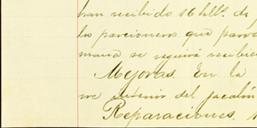 han recibido 16 hlls. de
los parcioneros que para
mana se requiri recibie
Mejoras. En la
me del jacalón
Reparaciones,